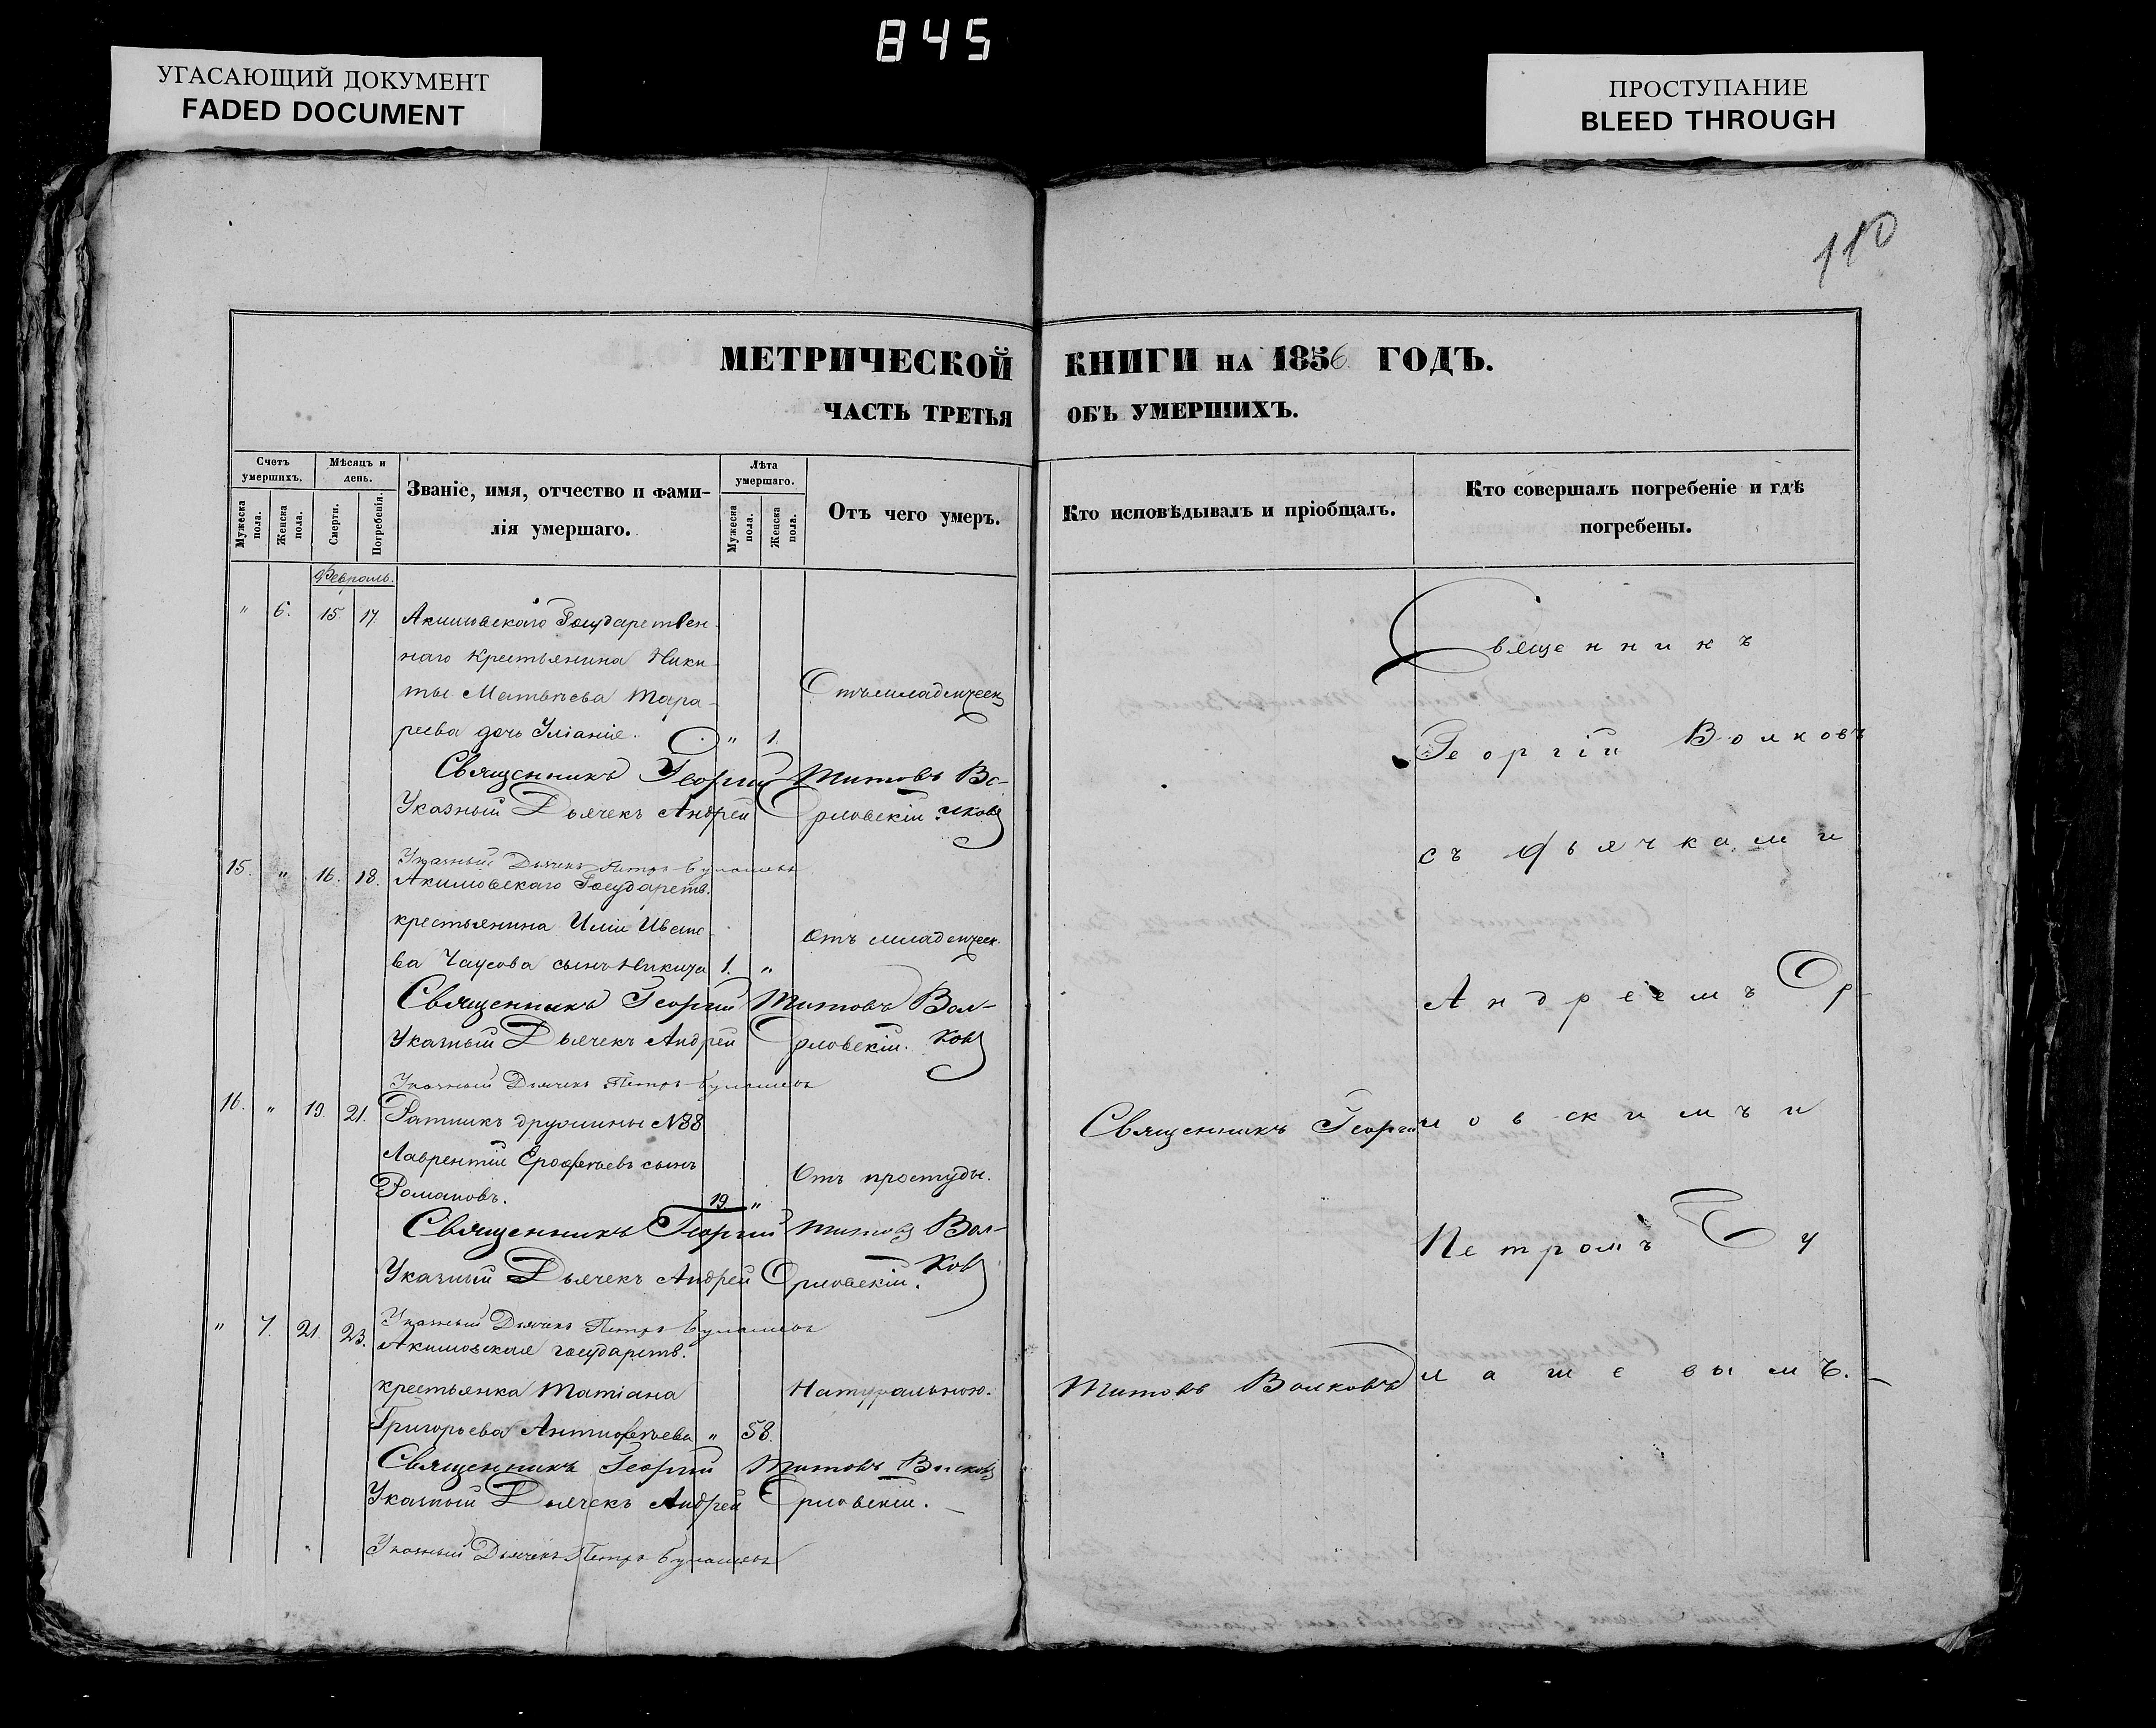 845
УГАСАЮЩИЙ ДОКУМЕНТ
FADED DOCUMENT
ПРОСТУПАНИЕ
BLEED THROUGH
110
МЕТРИЧЕСКОЙ КНИГИ НА 1856 ГОДЪ.
ЧАСТЬ ТРЕТЬЯ ОБЪ УМЕРШИХЪ.
Счетъ умершихъ.
Мужеска пола.
Женска пола.
Мѣсяцъ и день.
Смерти.
Погребенія.
Званіе, имя, отчество и фами-
лія умершаго.
Лѣта умершаго.
Мужеска пола.
Женска пола.
Отъ чего умеръ.
Кто исповѣдывалъ и пріобщалъ.
Кто совершалъ погребеніе и гдѣ
погребены.
Февраль.
" 6. 15. 17. Акимовскаго Государствен-
наго Крестьянина Ники-
ты Матвѣева Тара-
реева дочь Уліанiя. " 1.
Отъ младенческ
Священникъ Георгій Титовъ Во-
лковъ
Указный Дьячекъ Андрей Орловскій.
Указный Дьячекъ Петръ Булашевъ
15. " 16. 18. Акимовскаго Государств.
крестьянина Иліи Ивано-
ва Чаусова сынъ Никита 1. "
Отъ младенческ.
Священникъ Георгій Титовъ Вол-
ковъ
Указный Дьячекъ Андрей Орловскій.
Указный Дьячекъ Петръ Булашевъ
16. " 19. 21. Ратникъ дружины №38
Лаврентій Ерофѣевъ сынъ
Романовъ. 19 "
Отъ простуды.
Священникъ Георгій Титовъ Вол-
ковъ
Указный Дьячекъ Андрей Орловскій.
Указный Дьячекъ Петръ Булашевъ
" 7. 21. 23. Акимовская государств.
крестьянка Татіана
Григорьева Антифѣева " 58.
Натуральною.
Священникъ Георгій Титовъ Волковъ
Указный Дьячекъ Андрей Орловскій.
Указный Дьячекъ Петръ Булашевъ
Священникъ Георгій
Титовъ Волковъ
Священникъ
Георгій Волковъ
съ дьячками
Андреемъ Ор-
ловскимъ и
Петромъ Бу
лашевымъ.